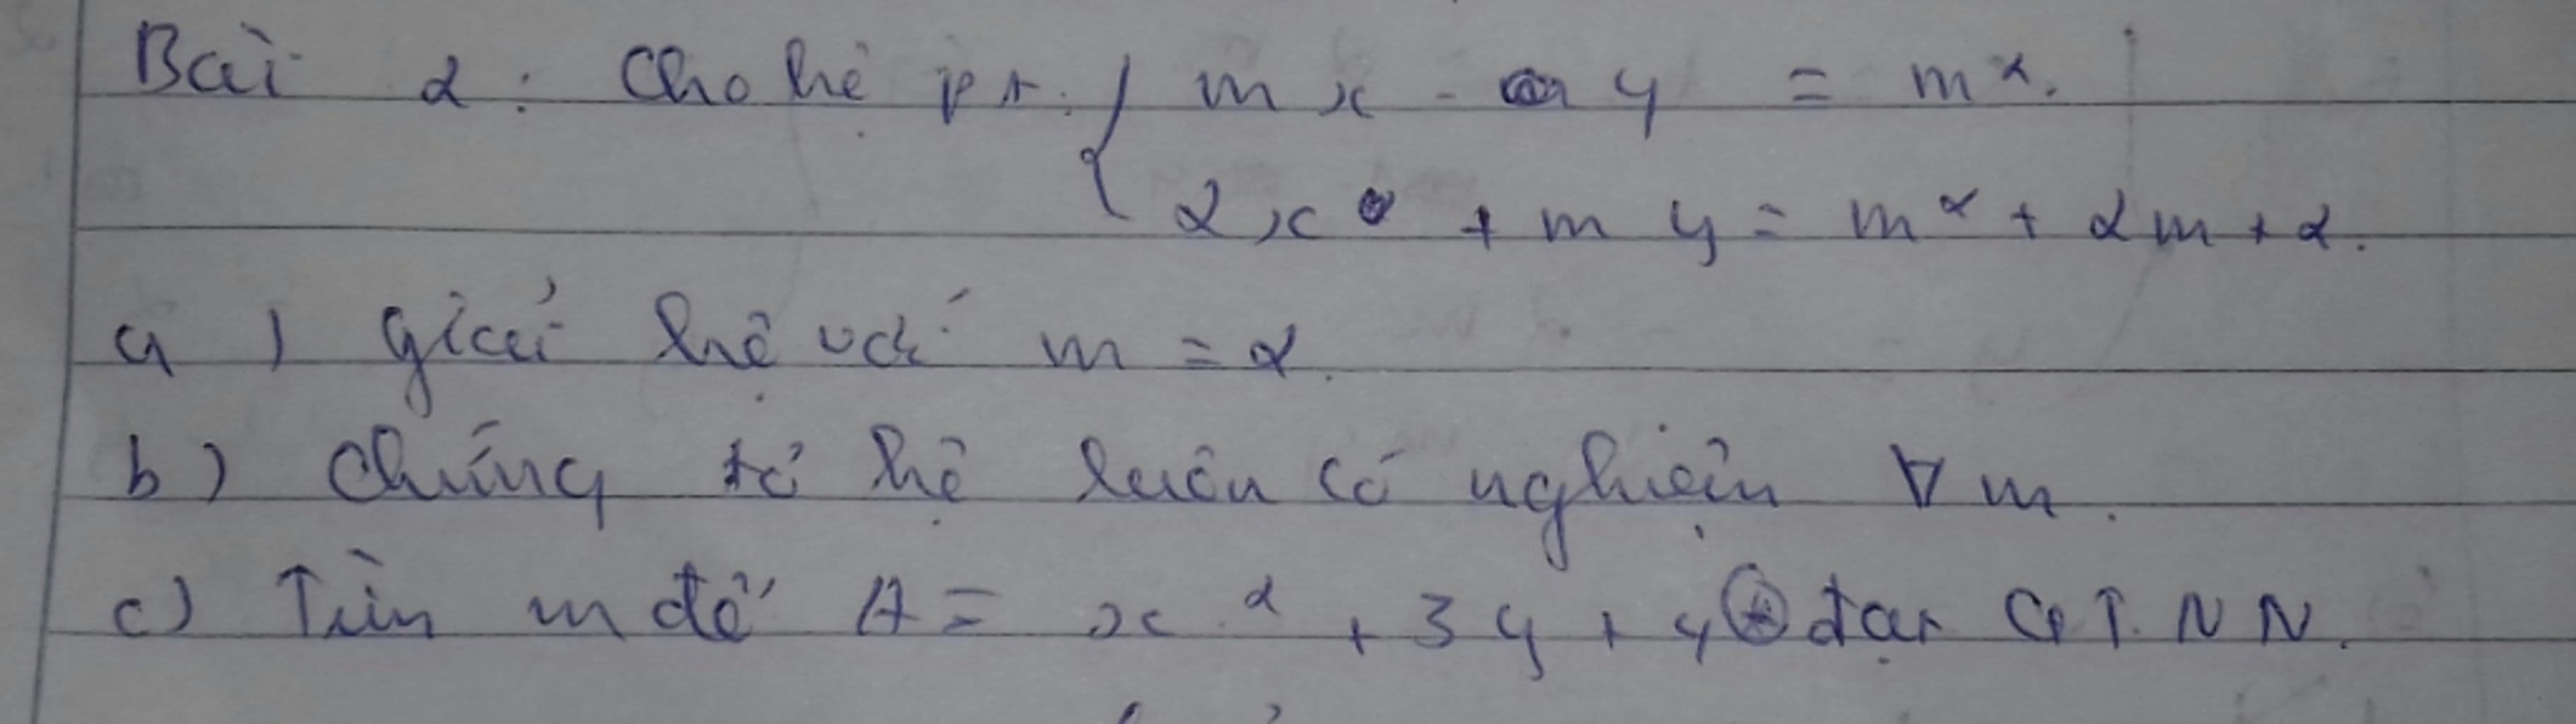 Bài 2: Cho hệ pt: { mx - y = m².
2x + my = m² + 2m + 2.
a) giải hệ với m = 2.
b) Chứng tỏ hệ luôn có nghiệm ∀ m.
c) Tìm m để A = x² + 3y + 4 đạt GTNN.